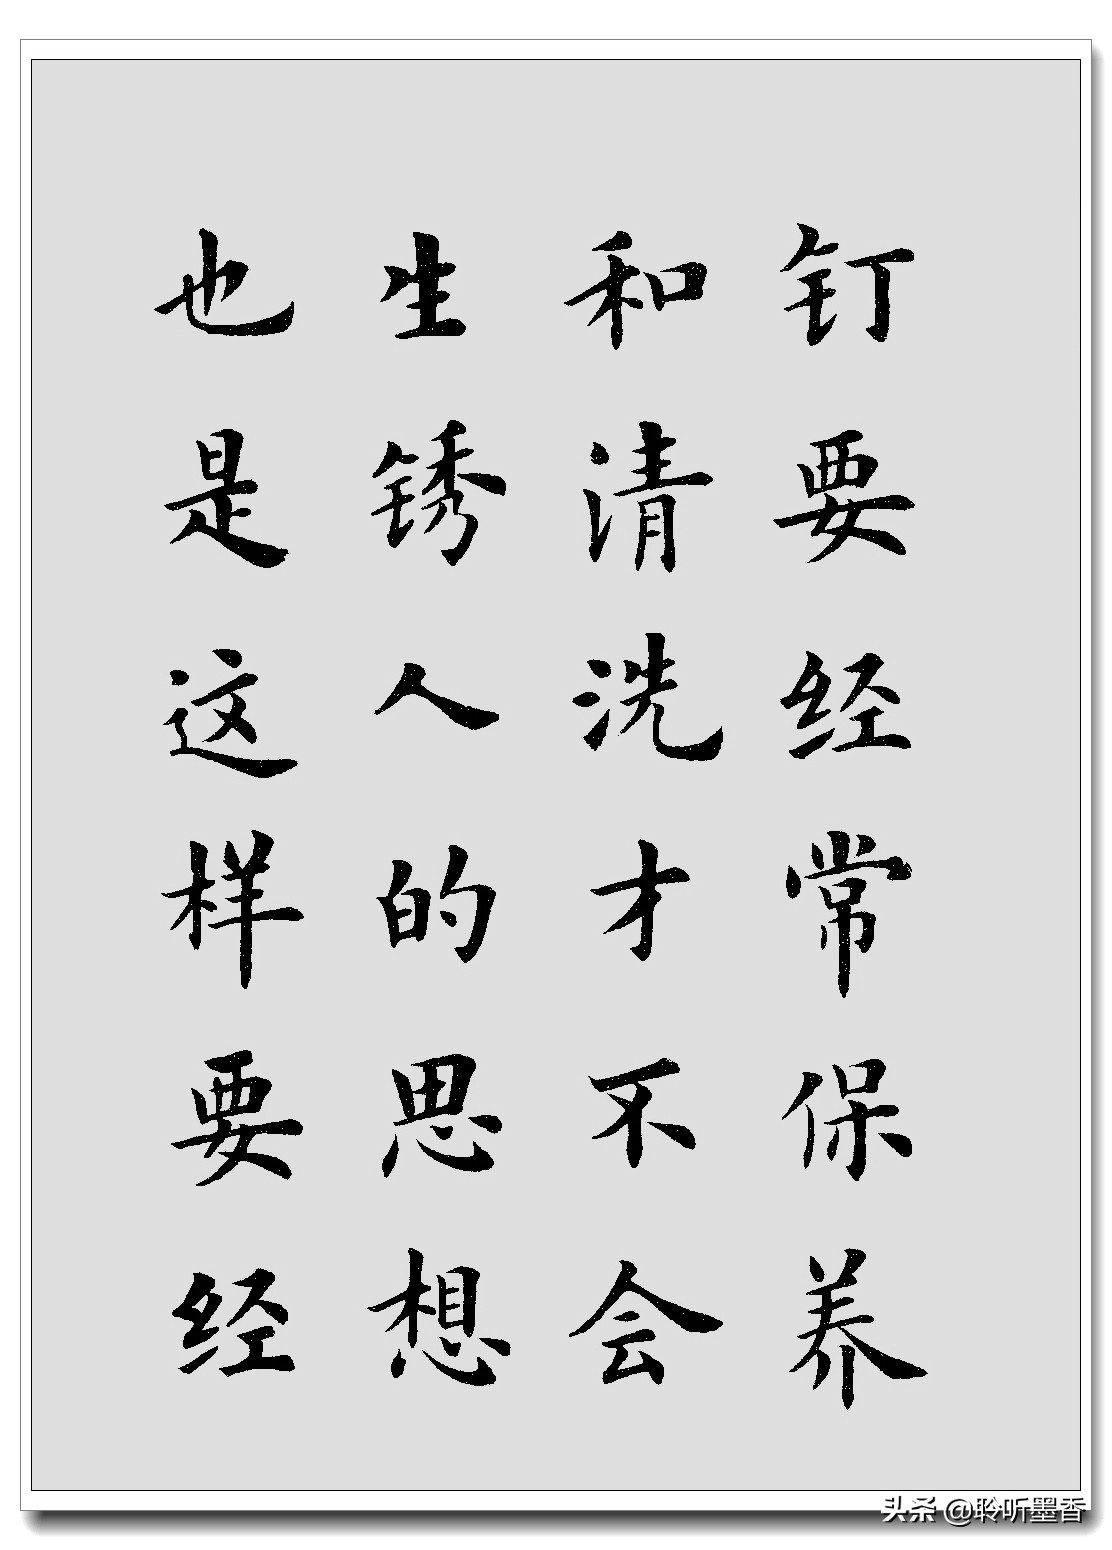 钉要经常保养
和清洗才不会
生锈人的思想
也是这样要经
头条 @聆听墨香